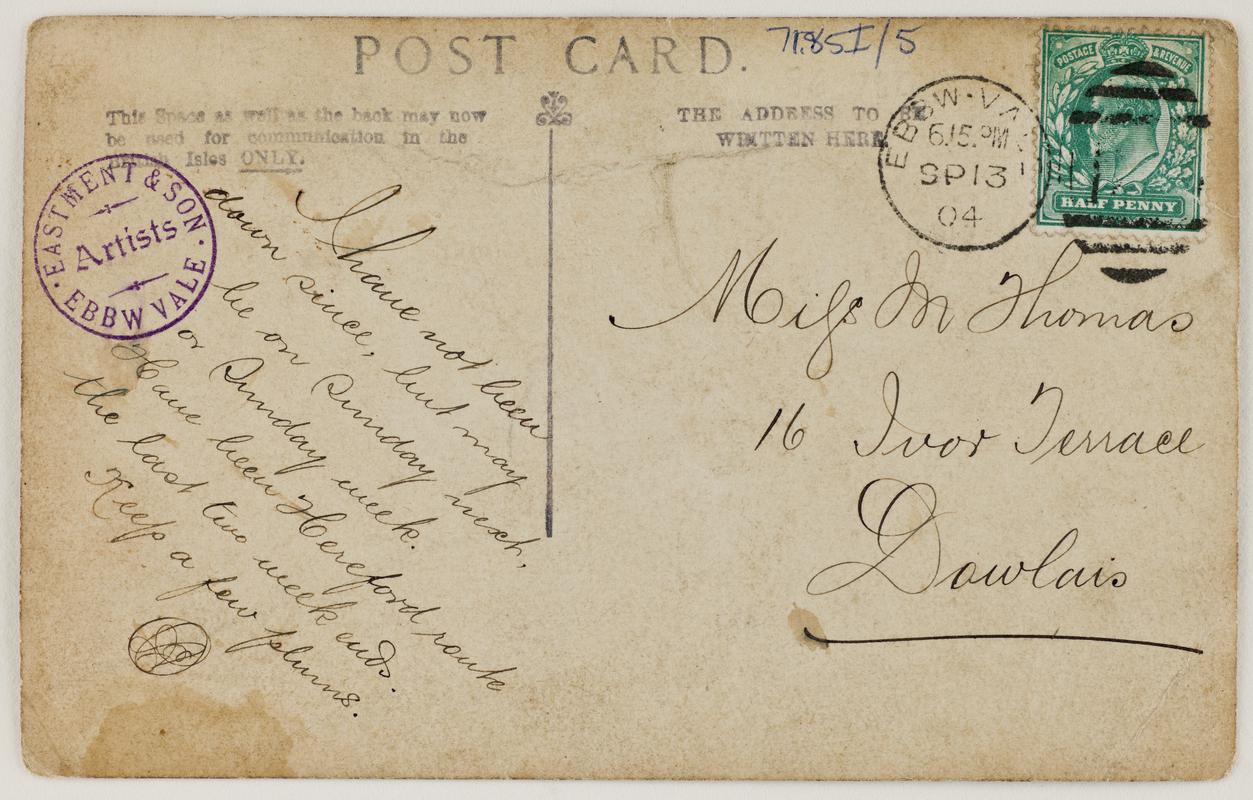 POST CARD.
71.85I/5
This Space as well as the back may now
be used for communication in the
British Isles ONLY.
THE ADDRESS TO BE
WRITTEN HERE
EASTMENT & SON.
Artists
EBBW VALE
EBBW·VA
6.15.PM
SP 13
04
POSTAGE & REVENUE
HALF PENNY
I have not been
down since, but may
be on Sunday next,
or Sunday week.
Have been Hereford route
the last two week ends.
Keep a few plums.
Miss M Thomas
16 Ivor Terrace
Dowlais